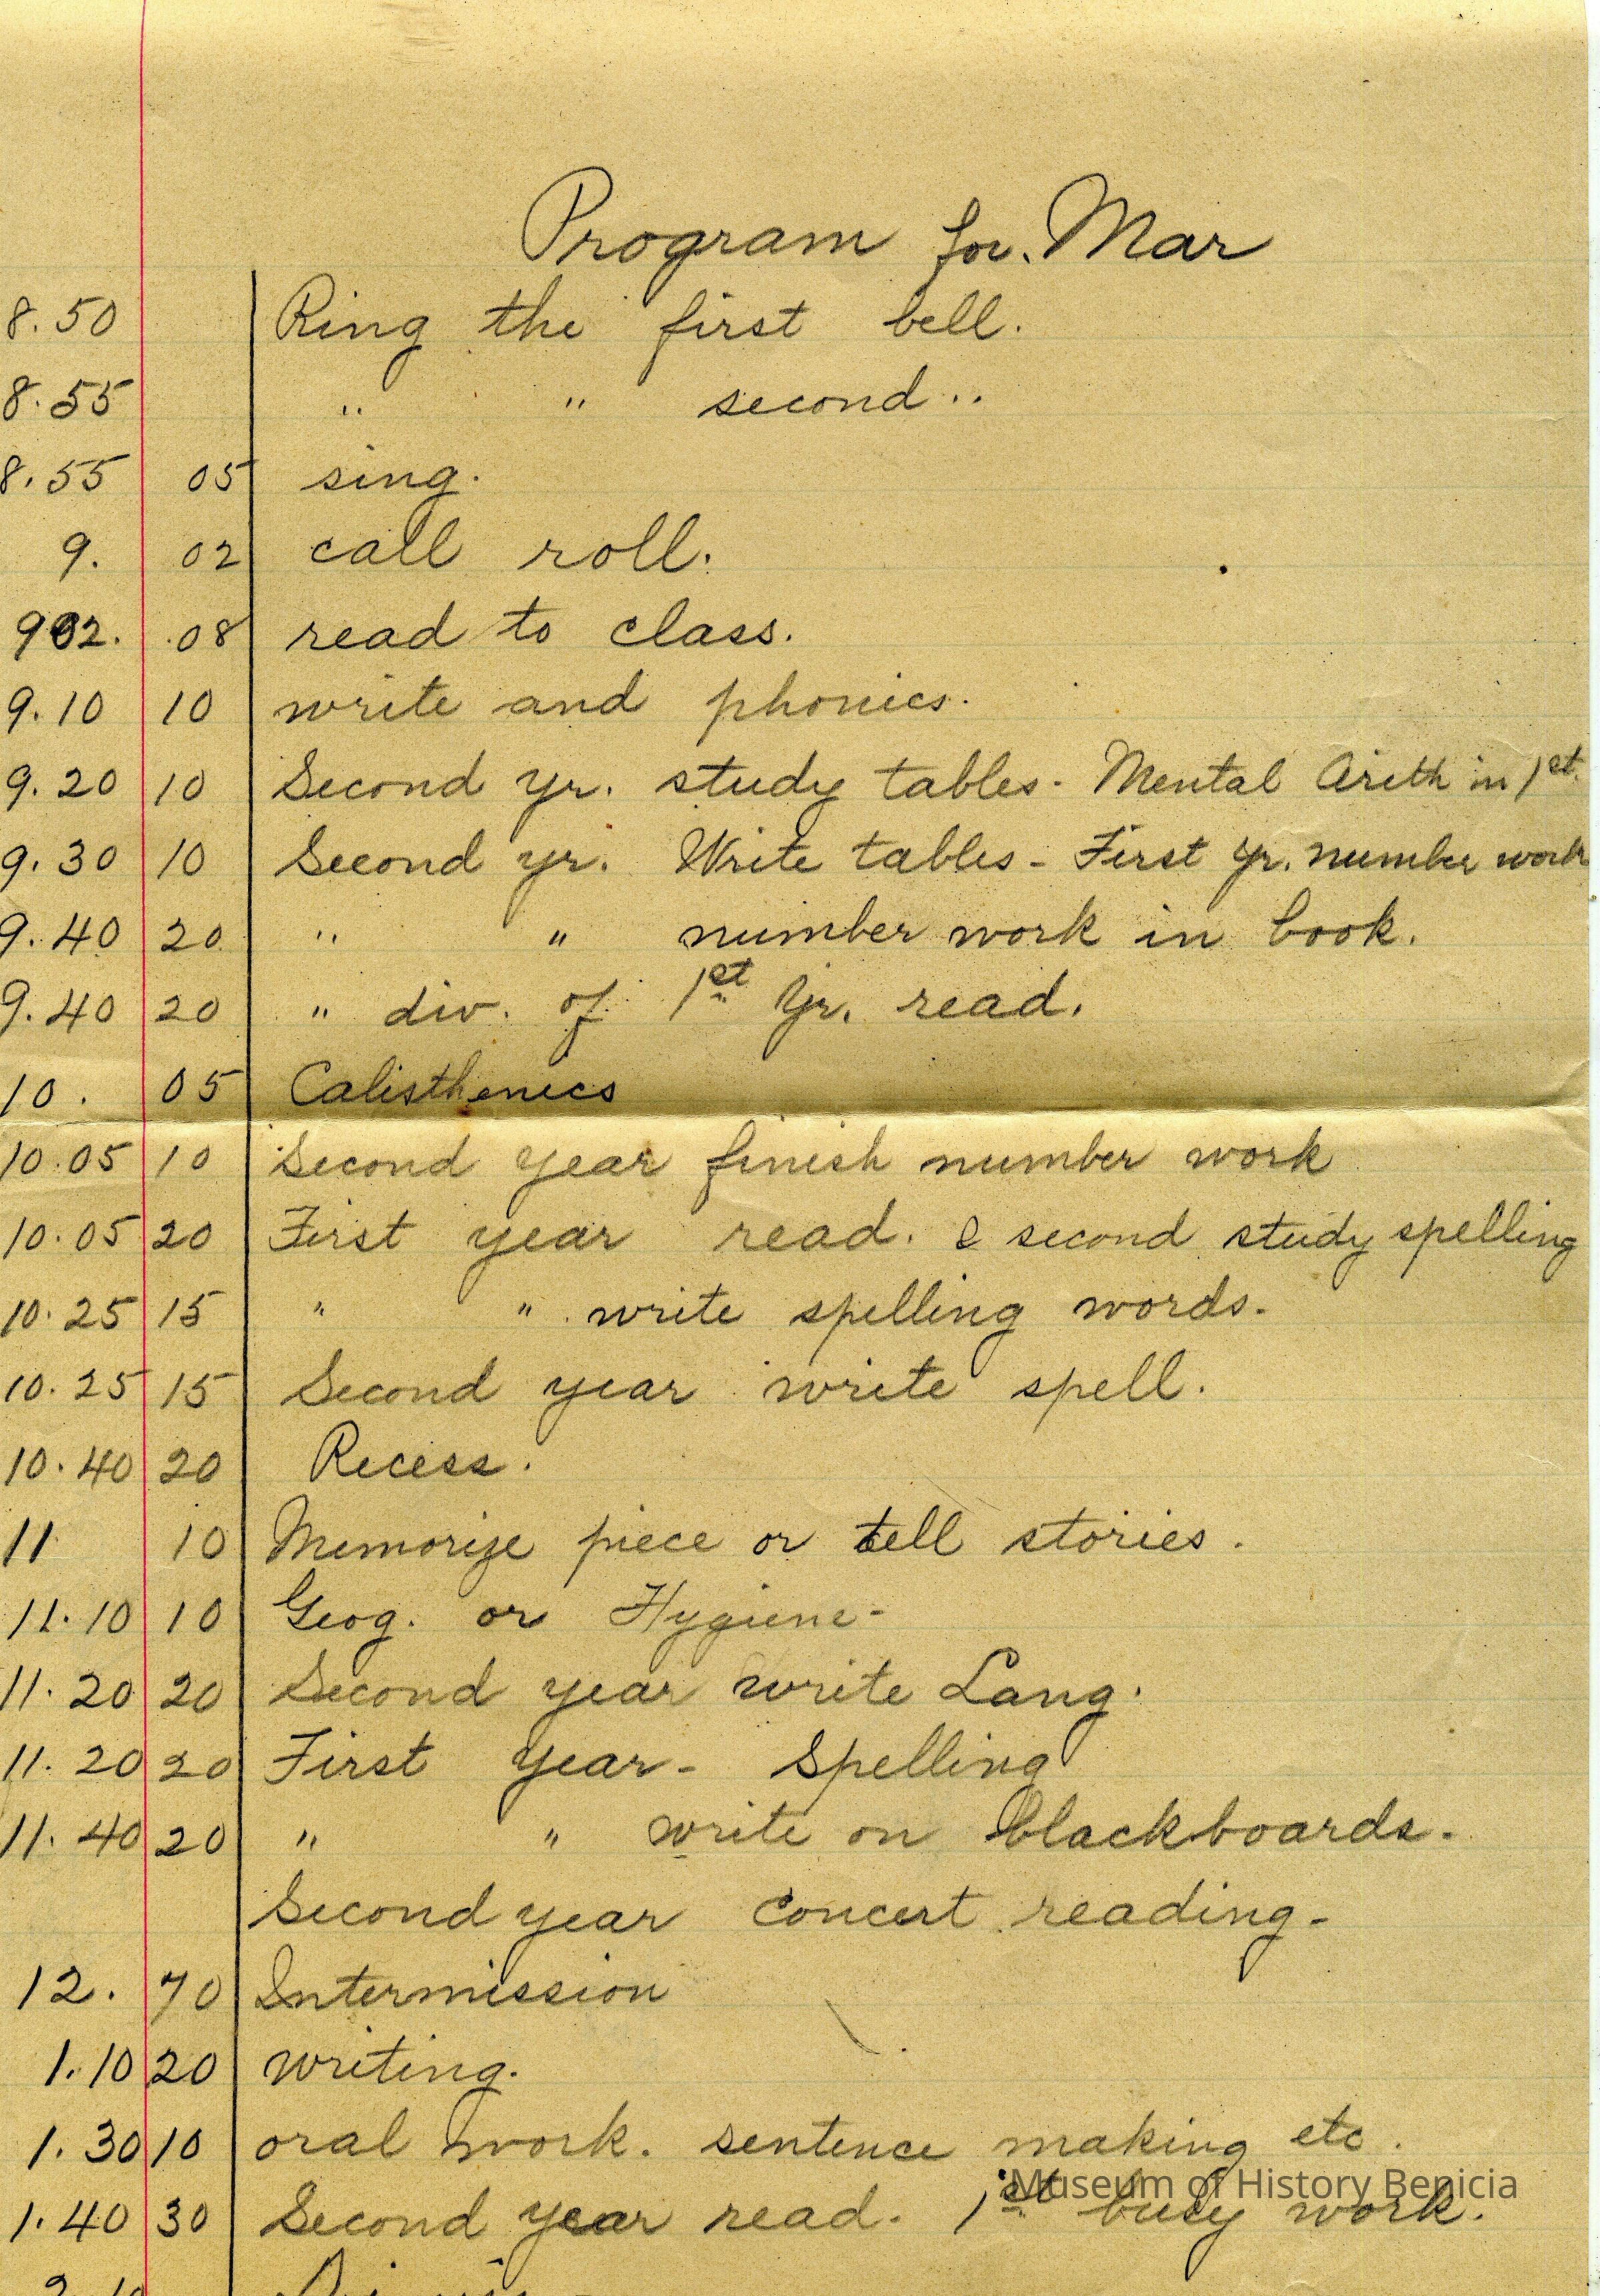 Program for. Mar
8.50 Ring the first bell.
8.55 " " second "
8.55 05 sing.
9. 02 call roll.
902. .08 read to class.
9.10 10 write and phonics.
9.20 10 Second yr. study tables - Mental Arith in 1st.
9.30 10 Second yr. Write tables - First yr. number work
9.40 20 " " number work in book.
9.40 20 " div. of 1st Yr. read.
10. 05 Calisthenics
10.05 10 Second year finish number work
10.05 20 First year read. & second study spelling
10.25 15 " " write spelling words.
10.25 15 Second year write spell.
10.40 20 Recess.
11 10 Memorize piece or tell stories.
11.10 10 Geog. or Hygiene -
11.20 20 Second year write Lang.
11.20 20 First Year - Spelling
11.40 20 " " write on blackboards.
Second year concert reading -
12. 70 Intermission
1.10 20 writing.
1.30 10 oral work. sentence making etc.
1.40 30 Second year read. 1st busy work.
Museum of History Benicia
2.10